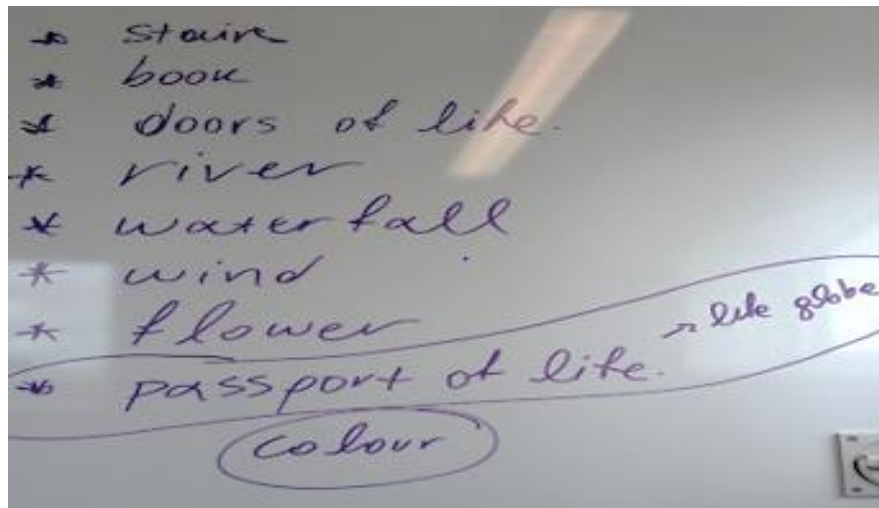 * stairs
* book
* doors of life.
* river
* waterfall
* wind
* flower
* passport of life. → like globe
colour